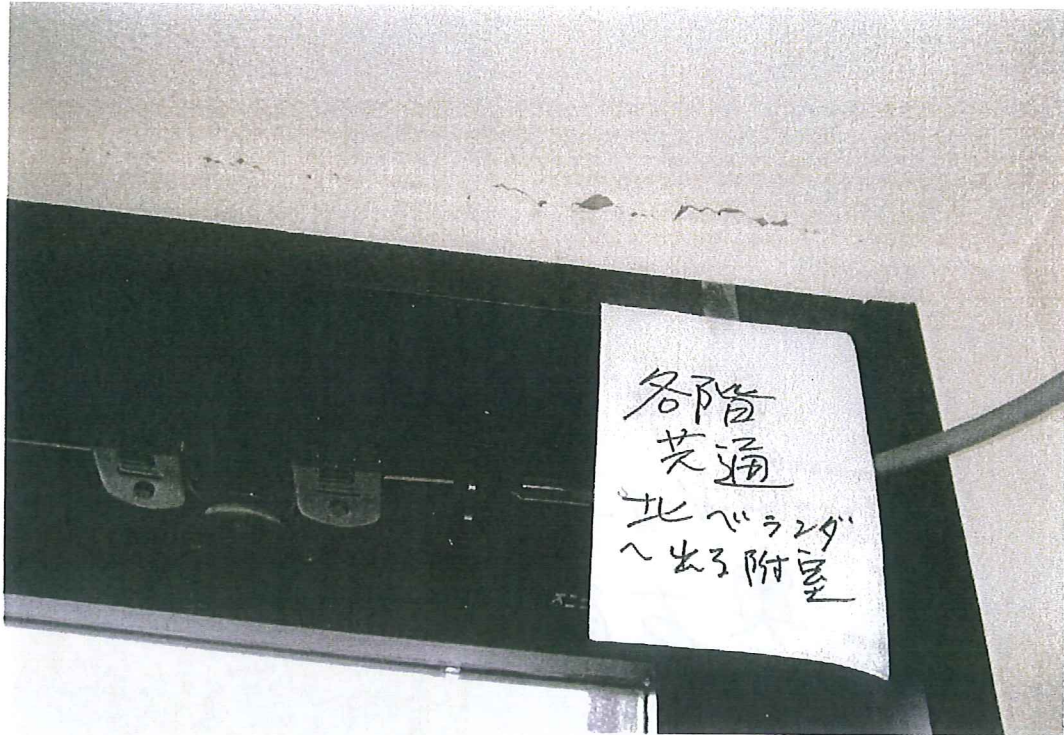 各階
共通
北ベランダ
へ出る附室